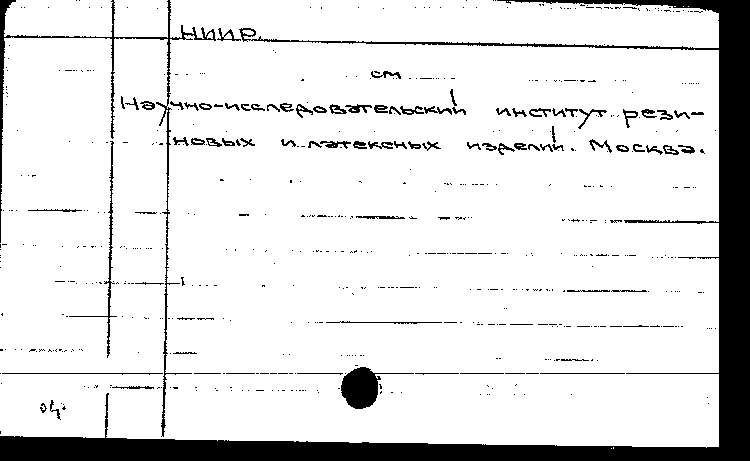 НИИР.
см
Научно-исследовательский институт рези-
новых и латексных изделий. Москва.